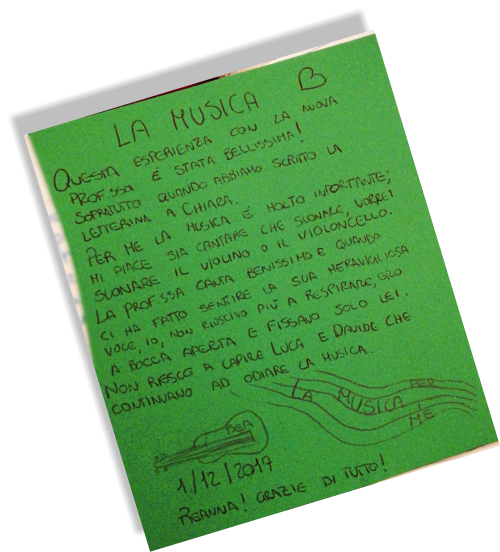 LA MUSICA
QUESTA ESPERIENZA CON LA NUOVA
PROF.SSA É STATA BELLISSIMA!
SOPRATUTTO QUANDO ABBIAMO SCRITTO LA
LETTERINA A CHIARA.
PER ME LA MUSICA É MOLTO IMPORTANTE;
MI PIACE SIA CANTARE CHE SUONARE, VORREI
SUONARE IL VIOLINO O IL VIOLONCELLO.
LA PROF.SSA CANTA BENISSIMO E QUANDO
CI HA FATTO SENTIRE LA SUA MERAVIGLIOSA
VOCE, IO, NON RIUSCIVO PIÙ A RESPIRARE, ERO
A BOCCA APERTA E FISSAVO SOLO LEI.
NON RIESCO A CAPIRE LUCA E DAVIDE CHE
CONTINUANO AD ODIARE LA MUSICA.
LA MUSICA PER ME
1/12/2017
REANNA! GRAZIE DI TUTTO!